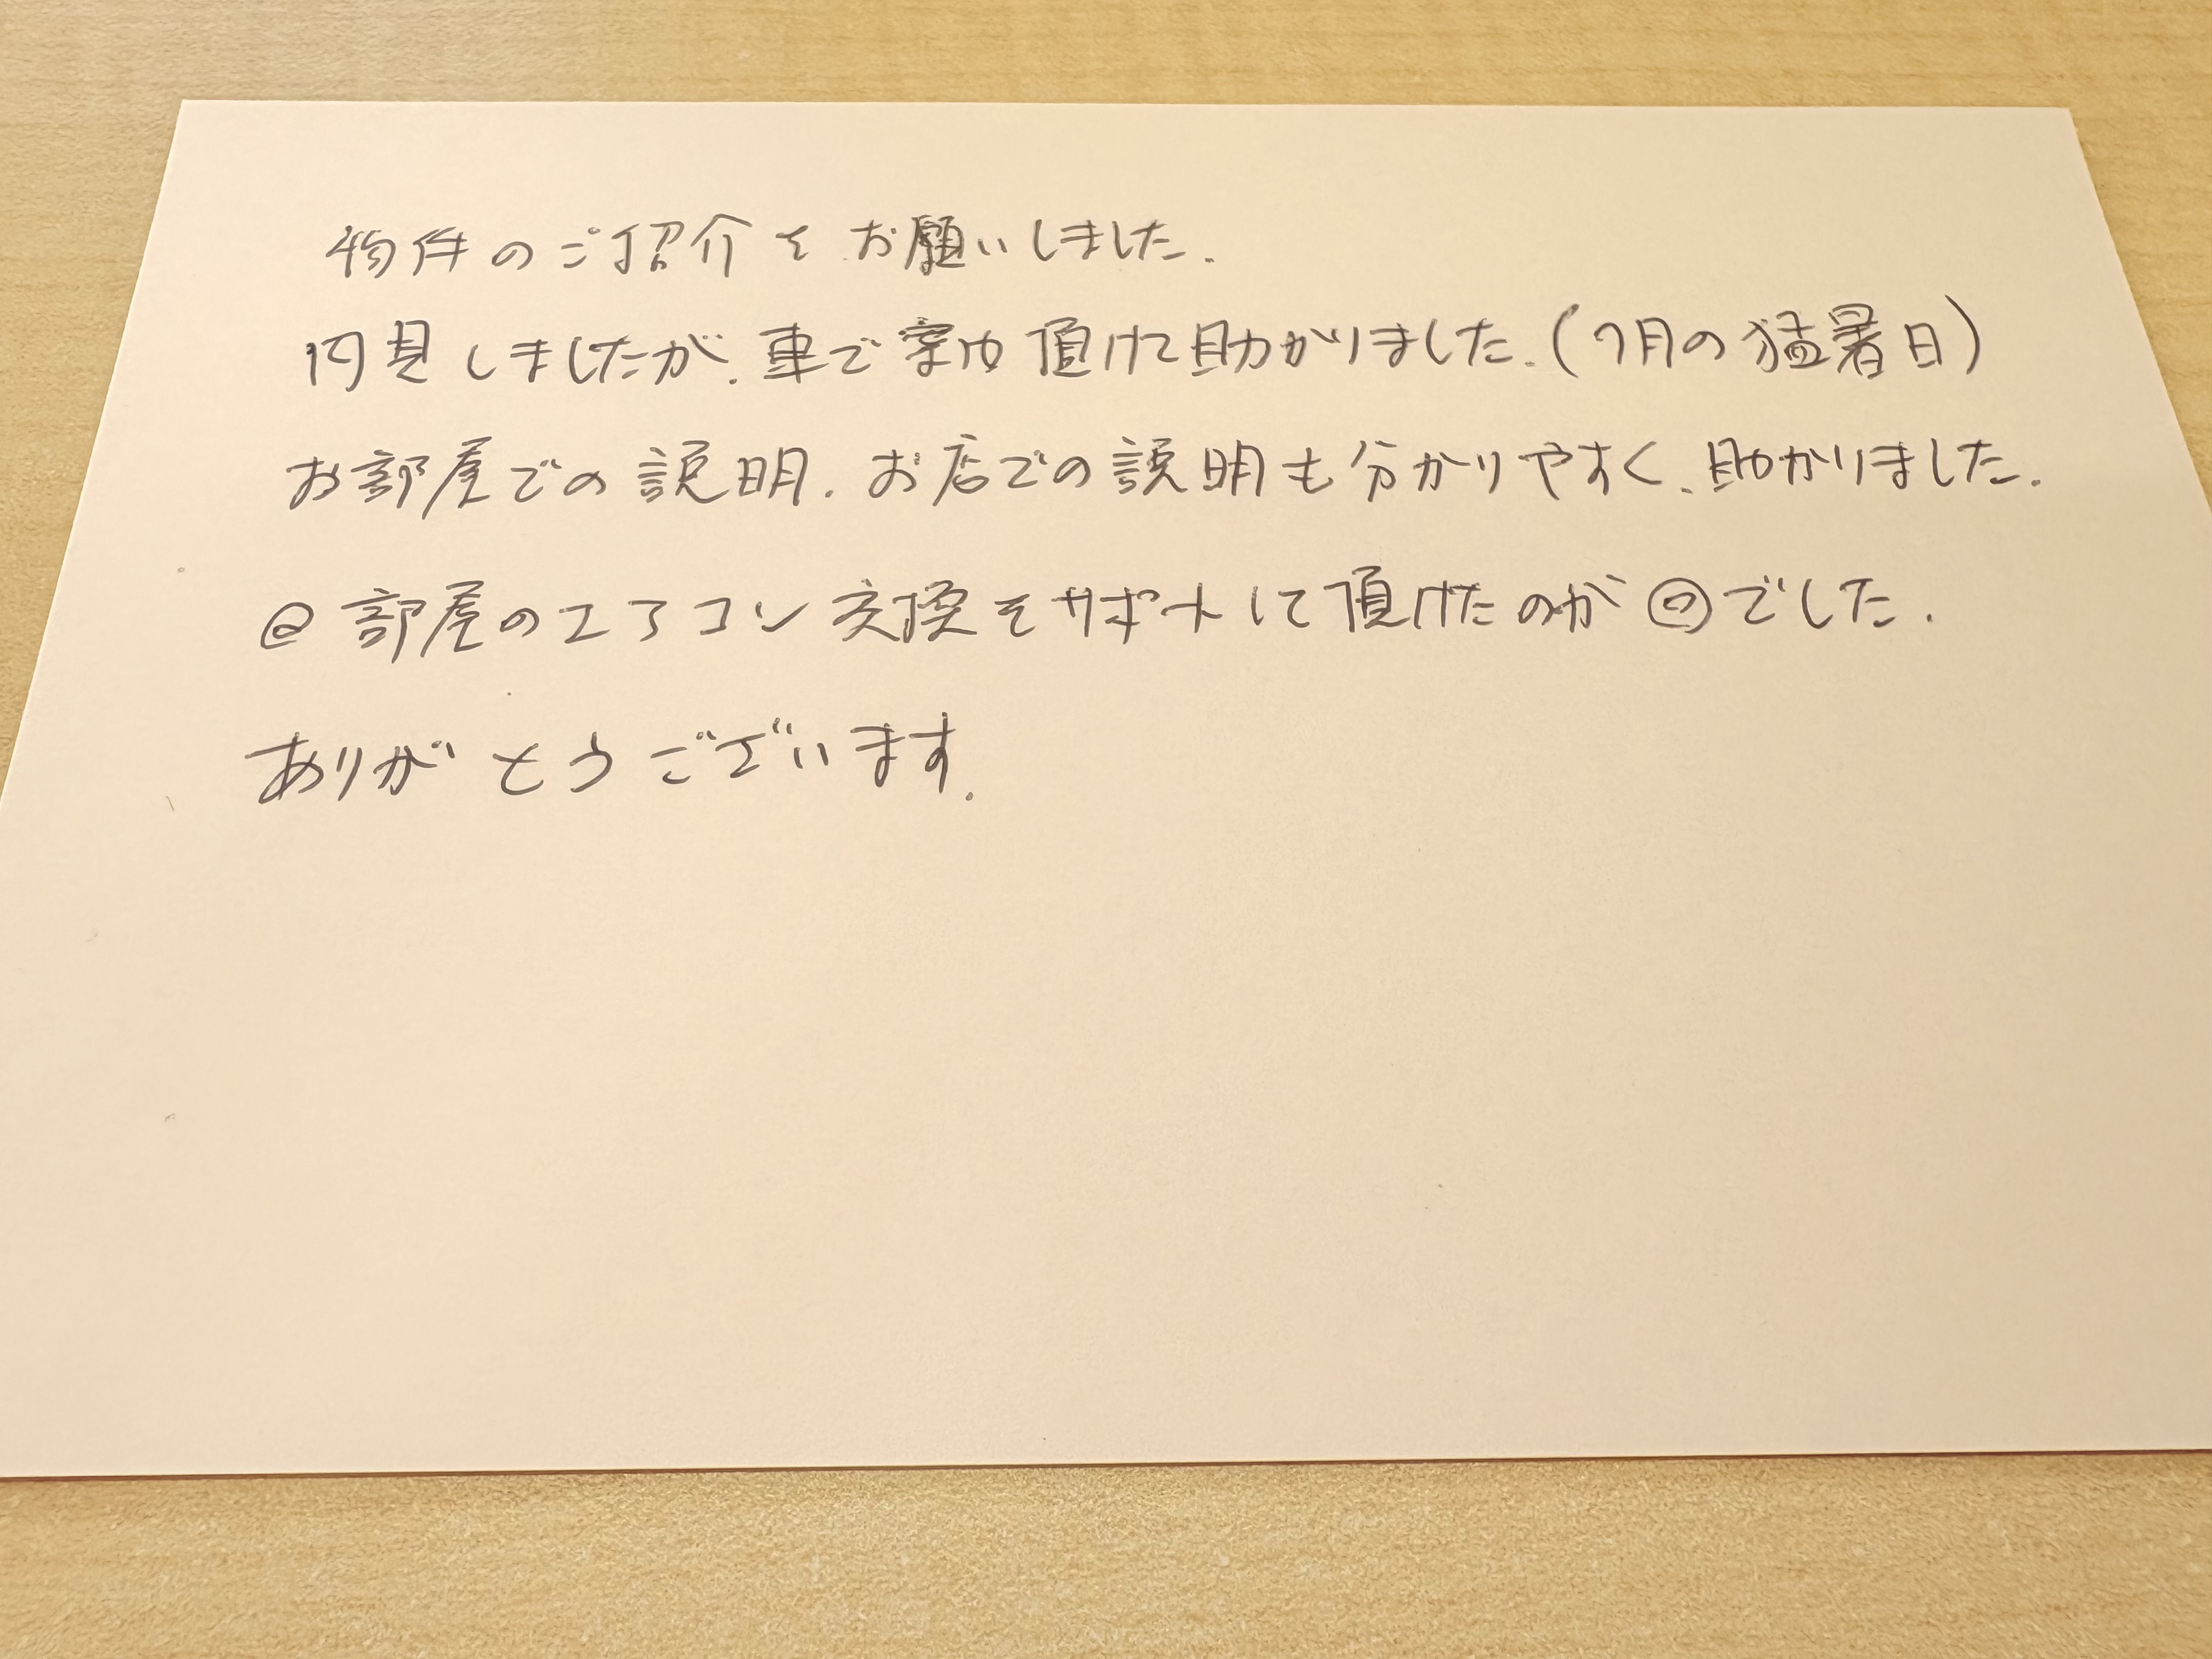 物件のご紹介をお願いしました.
内見しましたが、車で案内頂けて助かりました.(7月の猛暑日)
お部屋での説明、お店での説明も分かりやすく、助かりました.
◎部屋のエアコン交換をサポートして頂けたのが◎でした.
ありがとうございます.